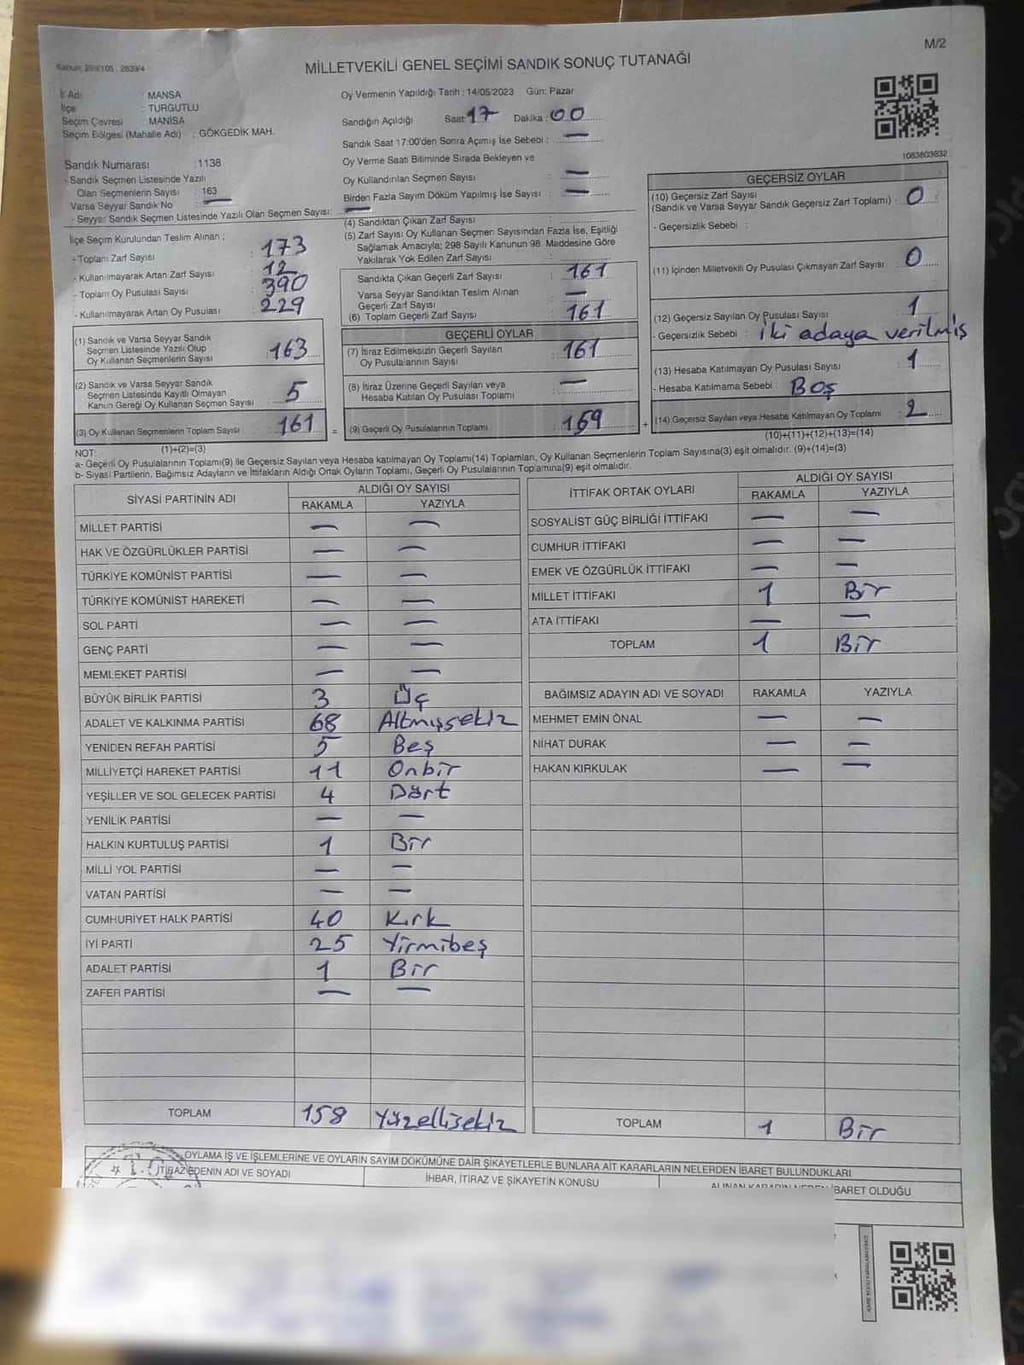 M/2
Kanun: 298/105 , 2839/4
MİLLETVEKİLİ GENEL SEÇİMİ SANDIK SONUÇ TUTANAĞI
İl Adı : MANİSA
İlçe : TURGUTLU
Seçim Çevresi : MANİSA
Seçim Bölgesi (Mahalle Adı) : GÖKGEDİK MAH.
Sandık Numarası : 1138
- Sandık Seçmen Listesinde Yazılı
Olan Seçmenlerin Sayısı : 163
Varsa Seyyar Sandık No : —
- Seyyar Sandık Seçmen Listesinde Yazılı Olan Seçmen Sayısı: —
Oy Vermenin Yapıldığı Tarih : 14/05/2023 Gün: Pazar
Sandığın Açıldığı Saat: 17 Dakika : 00
Sandık Saat 17:00'den Sonra Açılmış İse Sebebi : —
Oy Verme Saati Bitiminde Sırada Bekleyen ve
Oy Kullandırılan Seçmen Sayısı : —
Birden Fazla Sayım Döküm Yapılmış İse Sayısı : —
1083803832
İlçe Seçim Kurulundan Teslim Alınan ;
- Toplam Zarf Sayısı : 173
- Kullanılmayarak Artan Zarf Sayısı : 12
- Toplam Oy Pusulası Sayısı : 390
- Kullanılmayarak Artan Oy Pusulası : 229
(1) Sandık ve Varsa Seyyar Sandık
Seçmen Listesinde Yazılı Olup
Oy Kullanan Seçmenlerin Sayısı : 163
(2) Sandık ve Varsa Seyyar Sandık
Seçmen Listesinde Kayıtlı Olmayan
Kanun Gereği Oy Kullanan Seçmen Sayısı : 5
(3) Oy Kullanan Seçmenlerin Toplam Sayısı : 161
(1)+(2)=(3)
(4) Sandıktan Çıkan Zarf Sayısı :
(5) Zarf Sayısı Oy Kullanan Seçmen Sayısından Fazla İse, Eşitliği
Sağlamak Amacıyla; 298 Sayılı Kanunun 98. Maddesine Göre
Yakılarak Yok Edilen Zarf Sayısı :
Sandıkta Çıkan Geçerli Zarf Sayısı : 161
Varsa Seyyar Sandıktan Teslim Alınan
Geçerli Zarf Sayısı : —
(6) Toplam Geçerli Zarf Sayısı : 161
GEÇERLİ OYLAR
(7) İtiraz Edilmeksizin Geçerli Sayılan
Oy Pusulalarının Sayısı : 161
(8) İtiraz Üzerine Geçerli Sayılan veya
Hesaba Katılan Oy Pusulası Toplamı : —
= (9) Geçerli Oy Pusulalarının Toplamı : 159 +
GEÇERSİZ OYLAR
(10) Geçersiz Zarf Sayısı : 0
(Sandık ve Varsa Seyyar Sandık Geçersiz Zarf Toplamı)
- Geçersizlik Sebebi :
(11) İçinden Milletvekili Oy Pusulası Çıkmayan Zarf Sayısı : 0
(12) Geçersiz Sayılan Oy Pusulası Sayısı : 1
- Geçersizlik Sebebi : iki adaya verilmiş
(13) Hesaba Katılmayan Oy Pusulası Sayısı : 1
- Hesaba Katılmama Sebebi : Boş
(14) Geçersiz Sayılan veya Hesaba Katılmayan Oy Toplamı : 2
(10)+(11)+(12)+(13)=(14)
NOT:
a- Geçerli Oy Pusulalarının Toplamı(9) ile Geçersiz Sayılan veya Hesaba katılmayan Oy Toplamı(14) Toplamları, Oy Kullanan Seçmenlerin Toplam Sayısına(3) eşit olmalıdır. (9)+(14)=(3)
b- Siyasi Partilerin, Bağımsız Adayların ve İttifakların Aldığı Ortak Oyların Toplamı, Geçerli Oy Pusulalarının Toplamına(9) eşit olmalıdır.
SİYASİ PARTİNİN ADI ALDIĞI OY SAYISI
RAKAMLA YAZIYLA
MİLLET PARTİSİ — —
HAK VE ÖZGÜRLÜKLER PARTİSİ — —
TÜRKİYE KOMÜNİST PARTİSİ — —
TÜRKİYE KOMÜNİST HAREKETİ — —
SOL PARTİ — —
GENÇ PARTİ — —
MEMLEKET PARTİSİ — —
BÜYÜK BİRLİK PARTİSİ 3 Üç
ADALET VE KALKINMA PARTİSİ 68 Altmışsekiz
YENİDEN REFAH PARTİSİ 5 Beş
MİLLİYETÇİ HAREKET PARTİSİ 11 Onbir
YEŞİLLER VE SOL GELECEK PARTİSİ 4 Dört
YENİLİK PARTİSİ — —
HALKIN KURTULUŞ PARTİSİ 1 Bir
MİLLİ YOL PARTİSİ — —
VATAN PARTİSİ — —
CUMHURİYET HALK PARTİSİ 40 Kırk
İYİ PARTİ 25 Yirmibeş
ADALET PARTİSİ 1 Bir
ZAFER PARTİSİ — —
TOPLAM 158 Yüzellisekiz
İTTİFAK ORTAK OYLARI ALDIĞI OY SAYISI
RAKAMLA YAZIYLA
SOSYALİST GÜÇ BİRLİĞİ İTTİFAKI — —
CUMHUR İTTİFAKI — —
EMEK VE ÖZGÜRLÜK İTTİFAKI — —
MİLLET İTTİFAKI 1 Bir
ATA İTTİFAKI — —
TOPLAM 1 Bir
BAĞIMSIZ ADAYIN ADI VE SOYADI RAKAMLA YAZIYLA
MEHMET EMİN ÖNAL — —
NİHAT DURAK — —
HAKAN KIRKULAK — —
TOPLAM 1 Bir
OYLAMA İŞ VE İŞLEMLERİNE VE OYLARIN SAYIM DÖKÜMÜNE DAİR ŞİKAYETLERLE BUNLARA AİT KARARLARIN NELERDEN İBARET BULUNDUKLARI
İTİRAZ EDENİN ADI VE SOYADI İHBAR, İTİRAZ VE ŞİKAYETİN KONUSU ALINAN KARARIN NEDEN İBARET OLDUĞU